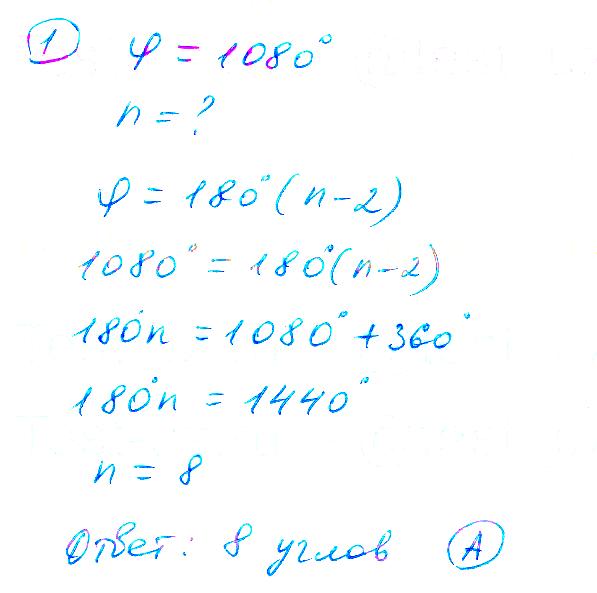 1 φ = 1080°
n = ?
φ = 180°(n-2)
1080° = 180°(n-2)
180°n = 1080° + 360°
180°n = 1440°
n = 8
Ответ: 8 углов А